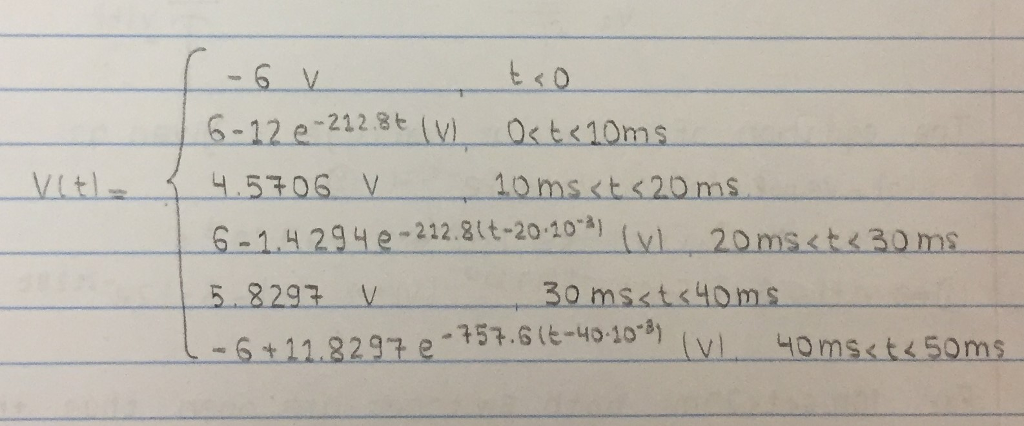 -6 V , t<0
6-12e^-212.8t (V), 0<t<10ms
V(t)= 4.5706 V , 10ms<t<20ms
6-1.4294e^-212.8(t-20·10^-3) (V) 20ms<t<30ms
5.8297 V , 30ms<t<40ms
-6+11.8297e^-757.6(t-40·10^-3) (V) 40ms<t<50ms